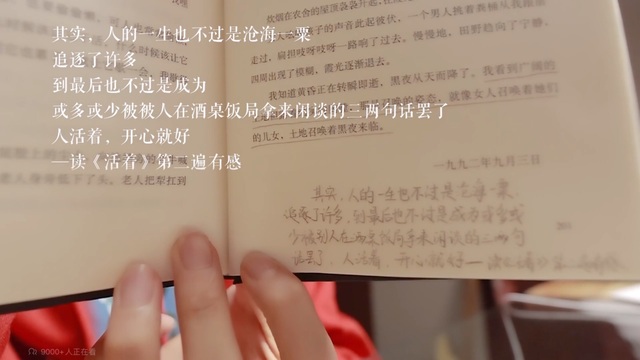 其实，人的一生也不过是沧海一粟
追逐了许多
到最后也不过是成为
或多或少被被人在酒桌饭局拿来闲谈的三两句话罢了
人活着，开心就好
—读《活着》第二遍有感
炊烟在农舍的屋顶袅袅升起，在
子的声音此起彼伏，一个男人挑着粪桶从我跟前
走过，扁担吱呀吱呀一路响了过去。慢慢地，田野趋向了宁静，
四周出现了模糊，霞光逐渐退去。
我知道黄昏正在转瞬即逝，黑夜从天而降了。我看到广阔的
的姿态，就像女人召唤着她们
的儿女，土地召唤着黑夜来临。
一九九二年九月三日
什么时候该让它
老人把犁扛到
低下了头。
其实，人的一生也不过是沧海一粟
追逐了许多，到最后也不过是成为或多或
少被别人在酒桌饭局拿来闲谈的三两句
话罢了，人活着，开心就好——读《活着》第二遍有感
9000+人正在看